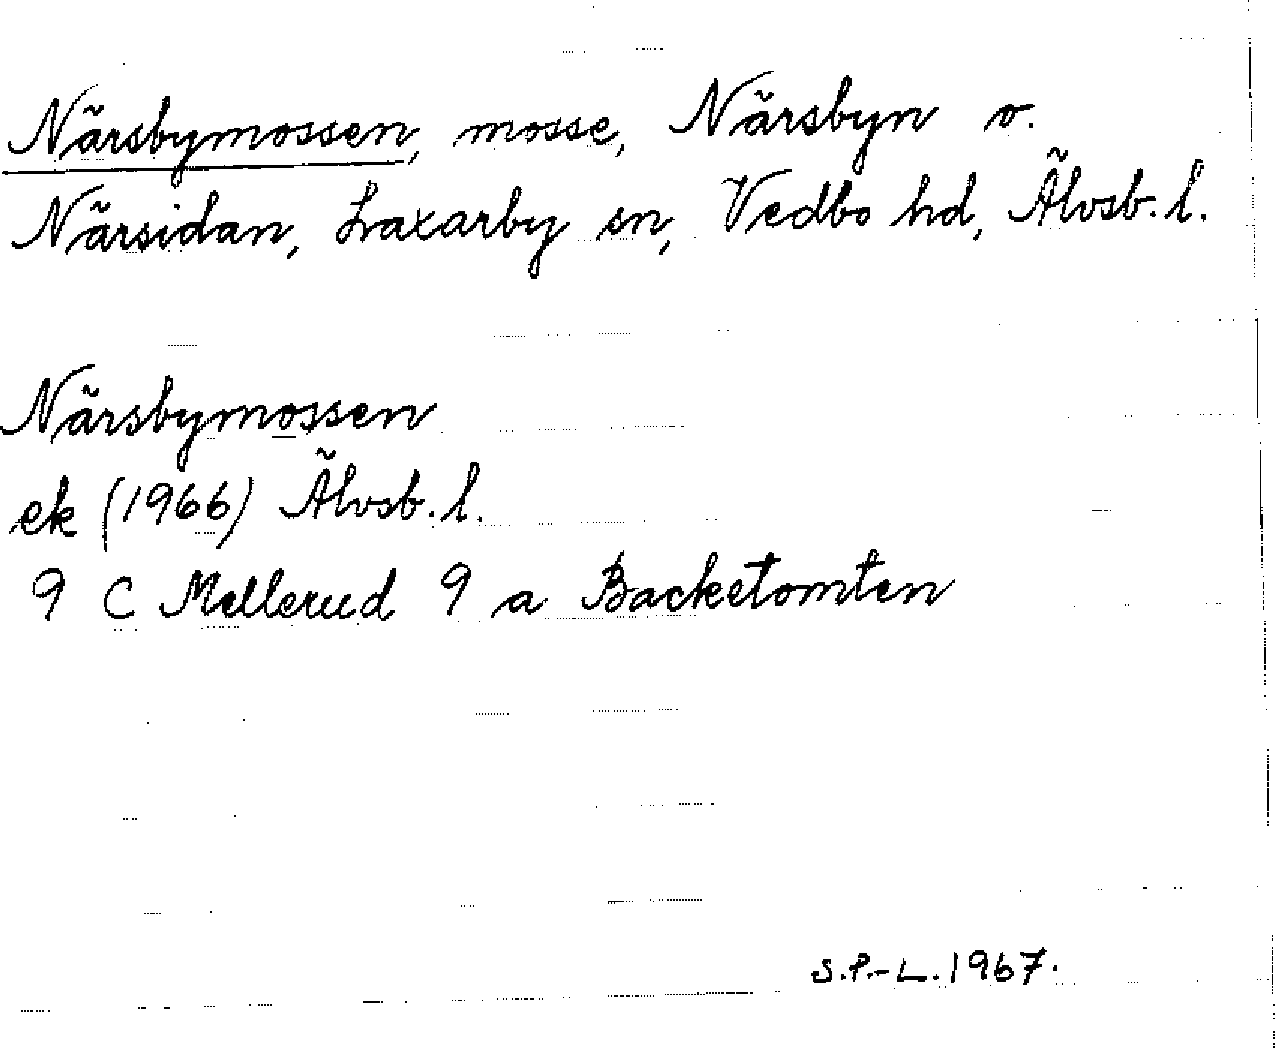 Närsbymossen, mosse, Närsbyn o.
Närsidan, Laxarby sn, Vedbo hd, Älvsb. l.
Närsbymossen
ek (1966) Älvsb. l.
9 C Mellerud 9 a Backetomten
S.P.-L. 1967.